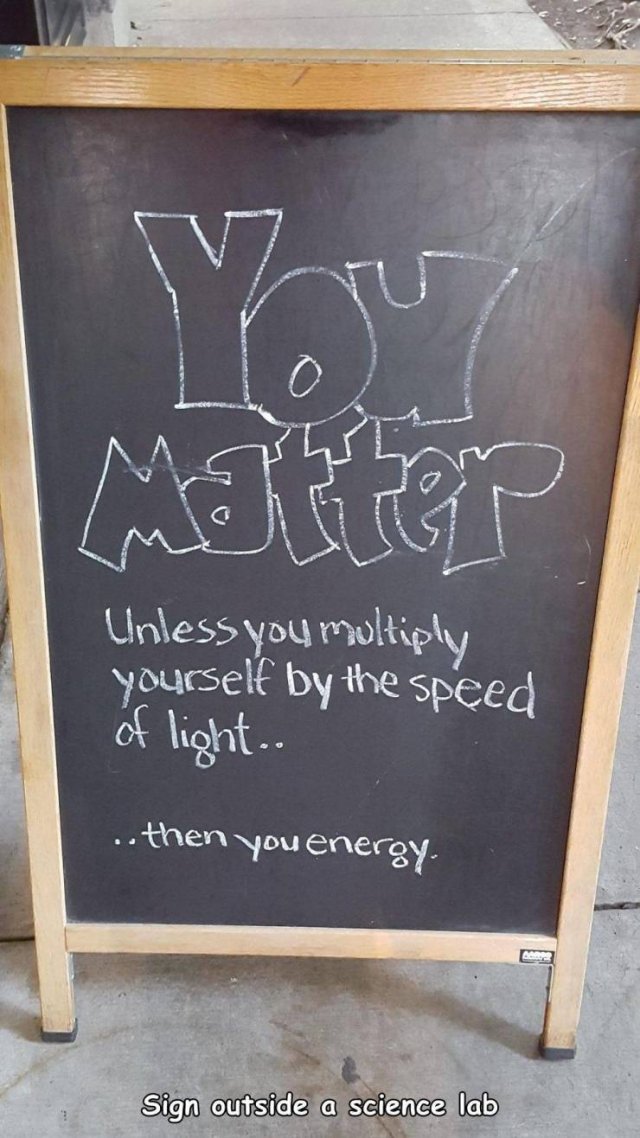 You
Matter
Unless you multiply
yourself by the speed
of light..
..then you energy.
Sign outside a science lab